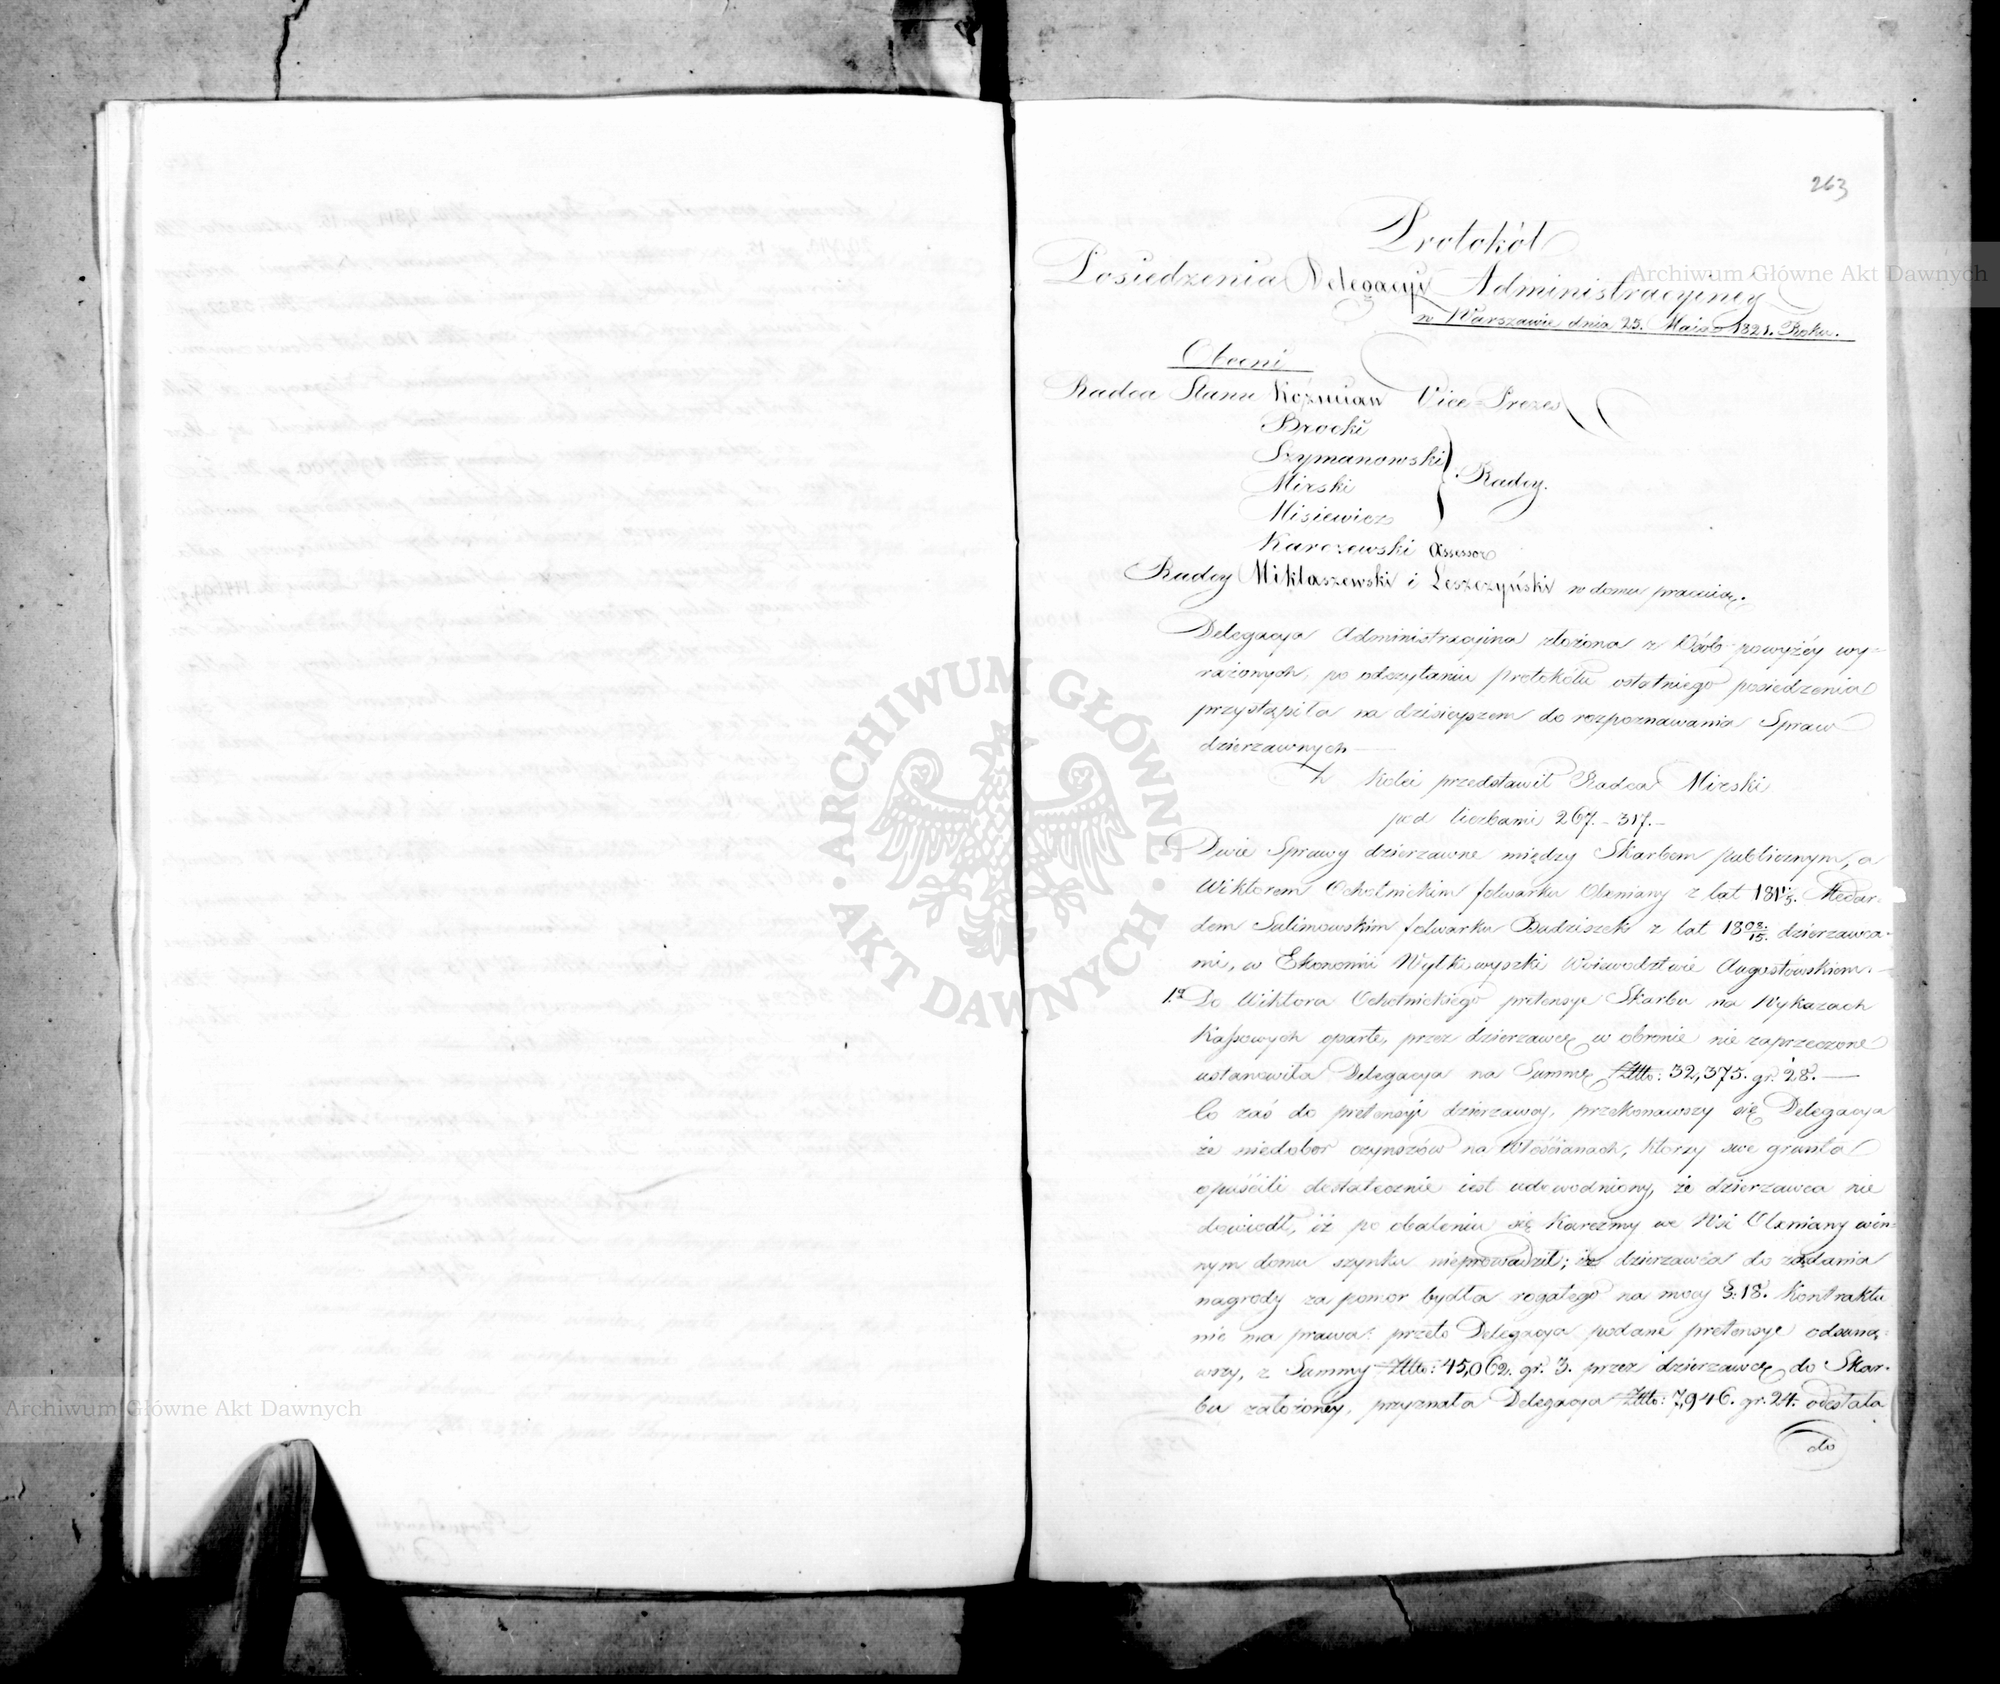 263
Protokół
Posiedzenia Delegacyi Administracyiney
w Warszawie dnia 25. Maia 1821. Roku.
Obecni
Radca Stanu Koźmian Vice-Prezes
Brocki
Szymanowski
Mirski
Radcy.
Misiewicz
Karczewski Assessor
Radcy Miklaszewski i Leszczyński w domu pracuią.
Delegacya Administracyina złożona z Osób powyżéy wy=
rażonych, po odczytaniu protokółu ostatniego posiedzenia
przystąpiła na dzisieyszem do rozpoznawania Spraw
dzierzawnych —
Z Kolei przedstawił Radca Mirski
pod liczbami 267. – 317. –
Dwie Sprawy dzierzawne między Skarbem publicznym, a
Wiktorem Ochotnickim folwarku Olxniany z lat 181 1/5. Medar=
dem Salimowskim folwarku Budziszek z lat 18 08./15. dzierzawca=
mi, w Ekonomii Wyłkowyszki Woiewodztwie Augustowskiem. —
1.º Do Wiktora Ochotnickiego pretensye Skarbu na Wykazach
Kassowych oparte, przez dzierzawcę w obronie nie zaprzeczone
ustanowiła Delegacya na Summę Złto: 32,375. gr. 28. —
Co zaś do pretensyi dzierzawcy, przekonawszy się Delegacya
że niedobor czynszów na Włościanach, ktorzy swe grunta
opuścili dostatecznie iest udowodniony, że dzierzawca nie
dowiodł, iż po obaleniu się Karczmy we Wsi Olxniany w in=
nym domu szynku nieprowadził; iż dzierzawca do żądania
nagrody za pomor bydła rogatego na mocy §. 18. Kontraktu
nie ma prawa: przeto Delegacya podane pretensye odsuną=
wszy, z Summy Złto: 45,062. gr. 3. przez dzierzawcę do Skar=
bu założonéy, przyznała Delegacya Złto: 7,946. gr. 24. odesłała
do
Archiwum Główne Akt Dawnych
Archiwum Główne Akt Dawnych
· ARCHIWUM GŁÓWNE · AKT DAWNYCH